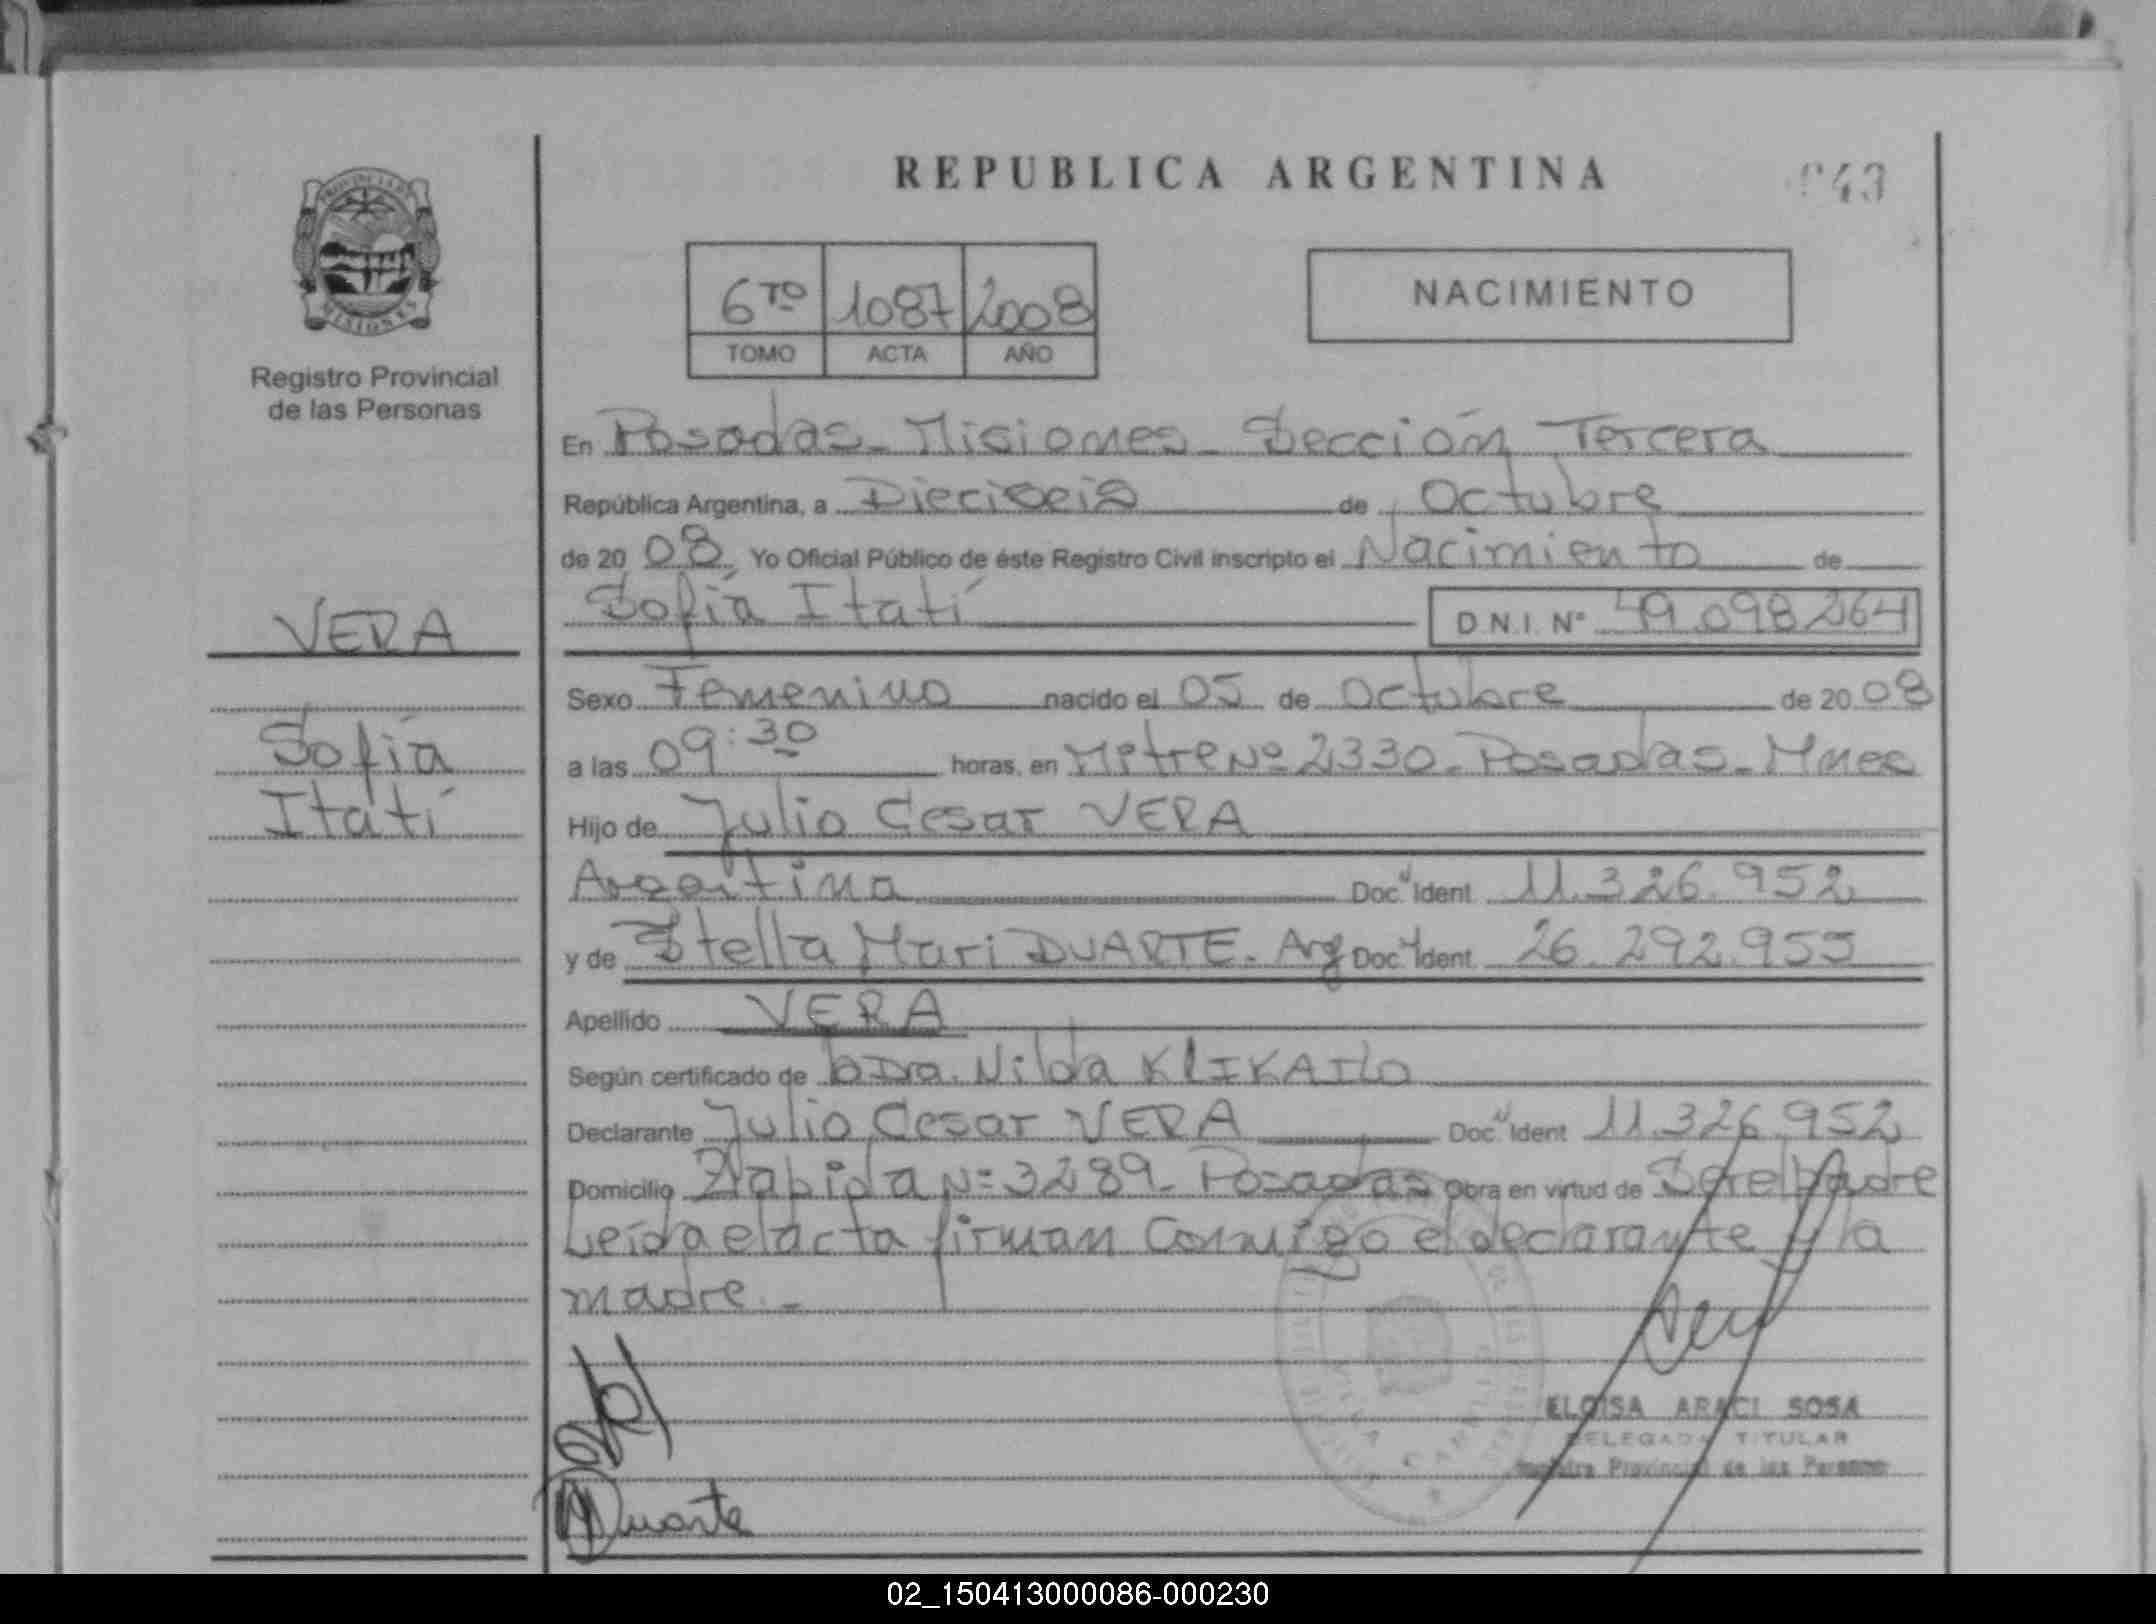 REPUBLICA ARGENTINA
043
PROVINCIA DE
MISIONES
Registro Provincial
de las Personas
6TO 1087 2008
TOMO ACTA AÑO
NACIMIENTO
En Posadas - Misiones - Sección Tercera
República Argentina, a Dieciseis de Octubre
de 20 08 Yo Oficial Público de éste Registro Civil inscripto el Nacimiento de
Sofía Itatí D.N.I. Nº 49.098.264
VERA
Sofía
Itatí
Sexo Femenino nacido el 05 de Octubre de 20 08
a las 09:30 horas, en Mitre Nº 2330 - Posadas - Mnes
Hijo de Julio Cesar VERA
Argentina Doc. Ident. 11.326.952
y de Stella Mari DUARTE. Arg Doc. Ident. 26.292.955
Apellido VERA
Según certificado de Dra. Nilda
Declarante Julio Cesar VERA Doc. Ident 11.326.952
Domicilio Nº 3289 - Posadas Obra en virtud de Ser el Padre
Leída el acta firman Conmigo el declarante y la
madre. -
ELOISA ARACI SOSA
DELEGADA TITULAR
Registro Provincial de las Personas
Duarte
02_150413000086-000230